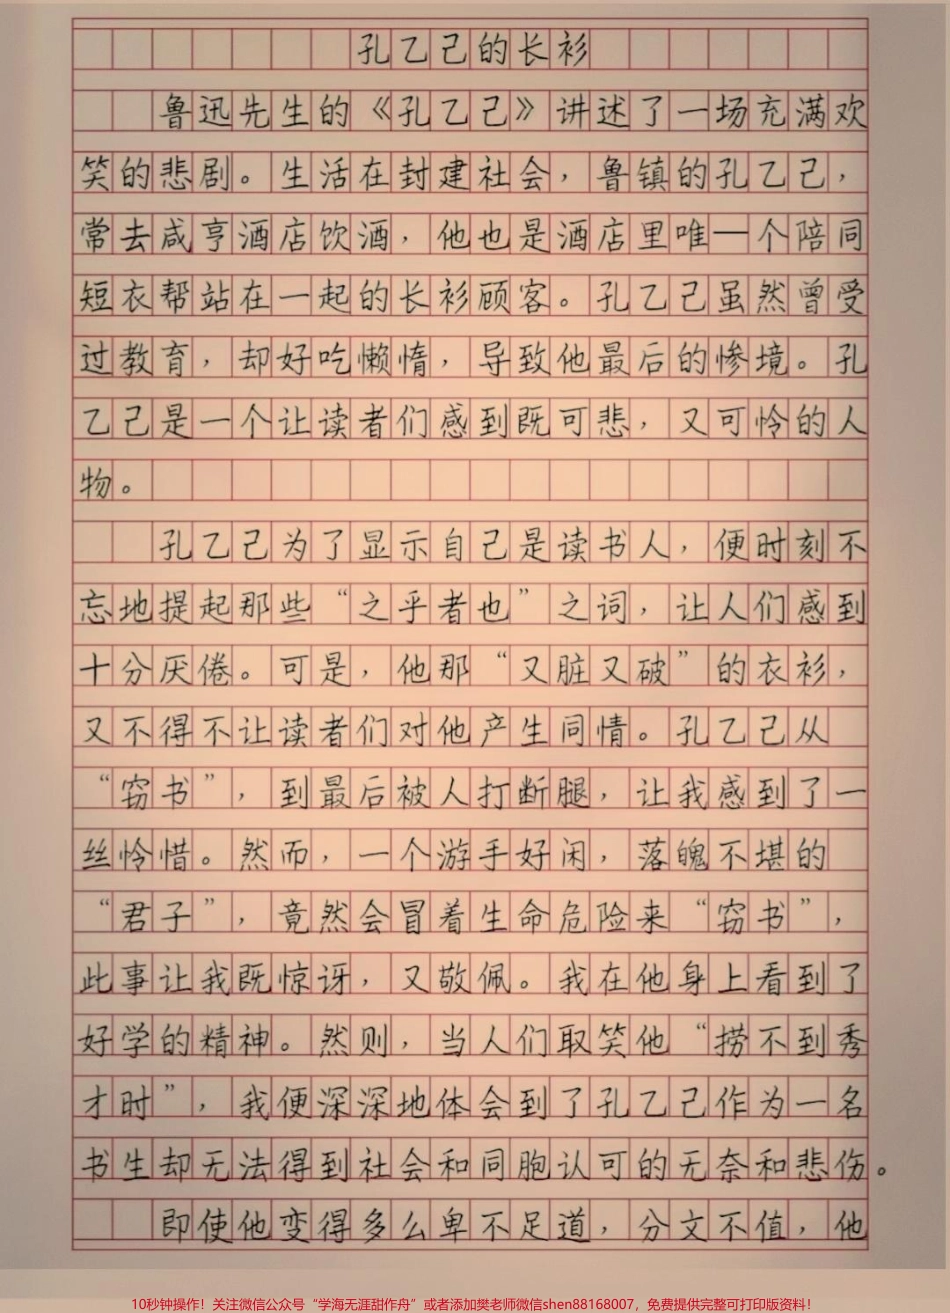 孔乙己的长衫
鲁迅先生的《孔乙己》讲述了一场充满欢
笑的悲剧。生活在封建社会，鲁镇的孔乙己，
常去咸亨酒店饮酒，他也是酒店里唯一个陪同
短衣帮站在一起的长衫顾客。孔乙己虽然曾受
过教育，却好吃懒惰，导致他最后的惨境。孔
乙己是一个让读者们感到既可悲，又可怜的人
物。
孔乙己为了显示自己是读书人，便时刻不
忘地提起那些“之乎者也”之词，让人们感到
十分厌倦。可是，他那“又脏又破”的衣衫，
又不得不让读者们对他产生同情。孔乙己从
“窃书”，到最后被人打断腿，让我感到了一
丝怜惜。然而，一个游手好闲，落魄不堪的
“君子”，竟然会冒着生命危险来“窃书”，
此事让我既惊讶，又敬佩。我在他身上看到了
好学的精神。然则，当人们取笑他“捞不到秀
才时”，我便深深地体会到了孔乙己作为一名
书生却无法得到社会和同胞认可的无奈和悲伤。
即使他变得多么卑不足道，分文不值，他
10秒钟操作！关注微信公众号“学海无涯甜作舟”或者添加樊老师微信shen88168007，免费提供完整可打印版资料！